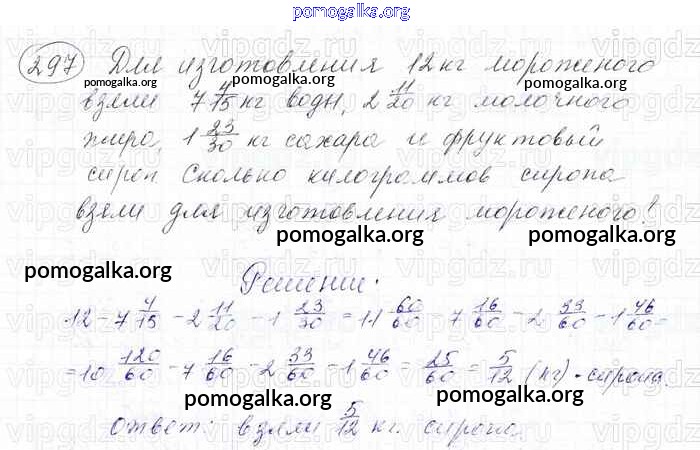 pomogalka.org
297 Для изготовления 12 кг мороженого
pomogalka.org pomogalka.org
взяли 7 4/15 кг воды, 2 11/20 кг молочного
жира, 1 23/30 кг сахара и фруктовый
сироп. Сколько килограммов сиропа
взяли для изготовления мороженого?
pomogalka.org pomogalka.org
pomogalka.org
Решение:
12 - 7 4/15 - 2 11/20 - 1 23/30 = 11 60/60 - 7 16/60 - 2 33/60 - 1 46/60 =
= 10 120/60 - 7 16/60 - 2 33/60 - 1 46/60 = 25/60 = 5/12 (кг) - сиропа.
pomogalka.org pomogalka.org
Ответ: взяли 5/12 кг сиропа.